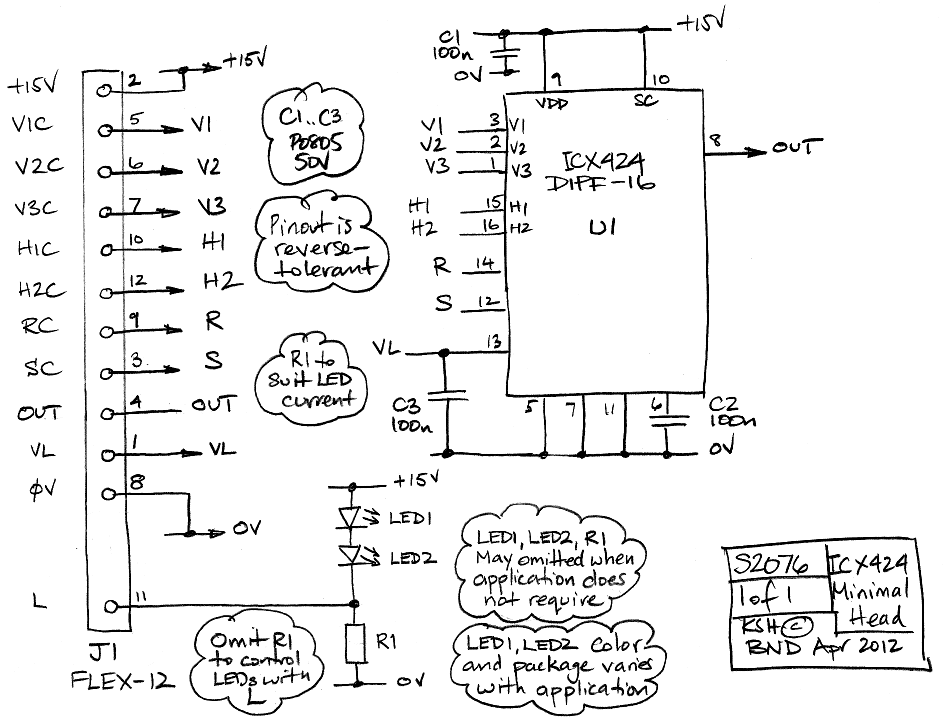 +15V 2 +15V
V1C 5 V1
V2C 6 V2
V3C 7 V3
H1C 10 H1
H2C 12 H2
RC 9 R
SC 3 S
OUT 4 OUT
VL 1 VL
ΦV 8 0V
L 11
J1
FLEX-12
C1..C3
P0805
50V
Pinout is
reverse-
tolerant
R1 to
suit LED
current
Omit R1
to control
LEDs with
L
C1
100n
0V
+15V
9 10
VDD SC
V1 3 V1
V2 2 V2
V3 1 V3
H1 15 H1
H2 16 H2
R 14
S 12
VL 13
ICX424
DIPF-16
U1
8 OUT
C3
100n
5 7 11 6
C2
100n
0V
+15V
LED1
LED2
R1
0V
LED1, LED2, R1
May omitted when
application does
not require
LED1, LED2 Color
and package varies
with application
S2076 ICX424
1 of 1 Minimal
Head
KSH ©
BND Apr 2012